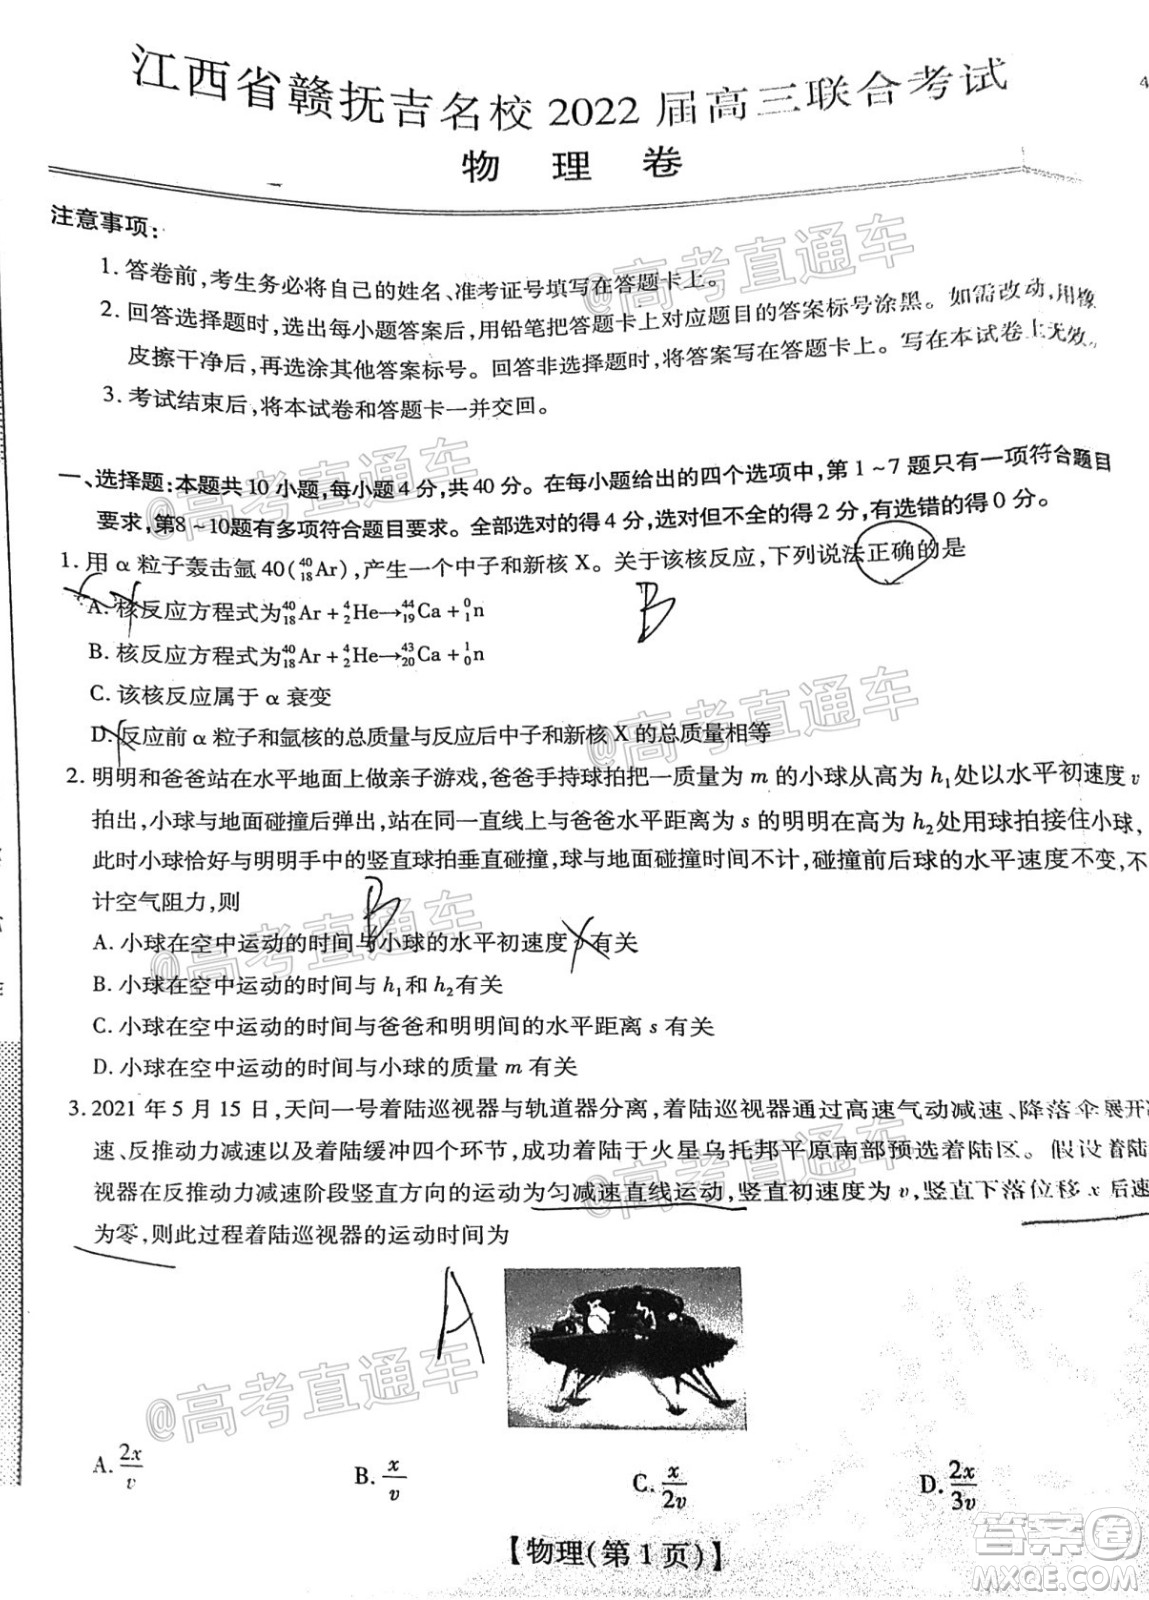 江西省赣抚吉名校 2022 届高三联合考试
物 理 卷
注意事项:
1. 答卷前,考生务必将自己的姓名、准考证号填写在答题卡上。
2. 回答选择题时,选出每小题答案后,用铅笔把答题卡上对应题目的答案标号涂黑。如需改动,用橡
皮擦干净后,再选涂其他答案标号。回答非选择题时,将答案写在答题卡上。写在本试卷上无效。
3. 考试结束后,将本试卷和答题卡一并交回。
一、选择题:本题共 10 小题,每小题 4 分,共 40 分。在每小题给出的四个选项中,第 1~7 题只有一项符合题目
要求,第8~10题有多项符合题目要求。全部选对的得 4 分,选对但不全的得 2 分,有选错的得 0 分。
1. 用 α 粒子轰击氩 40(⁴⁰₁₈Ar),产生一个中子和新核 X。关于该核反应,下列说法正确的是
A. 核反应方程式为⁴⁰₁₈Ar+⁴₂He→⁴⁴₁₉Ca+⁰₁n
B
B. 核反应方程式为⁴⁰₁₈Ar+⁴₂He→⁴³₂₀Ca+¹₀n
C. 该核反应属于 α 衰变
D. 反应前 α 粒子和氩核的总质量与反应后中子和新核 X 的总质量相等
2. 明明和爸爸站在水平地面上做亲子游戏,爸爸手持球拍把一质量为 m 的小球从高为 h₁处以水平初速度 v
拍出,小球与地面碰撞后弹出,站在同一直线上与爸爸水平距离为 s 的明明在高为 h₂处用球拍接住小球,
此时小球恰好与明明手中的竖直球拍垂直碰撞,球与地面碰撞时间不计,碰撞前后球的水平速度不变,不
计空气阻力,则
B
A. 小球在空中运动的时间与小球的水平初速度 v 有关
B. 小球在空中运动的时间与 h₁和 h₂有关
C. 小球在空中运动的时间与爸爸和明明间的水平距离 s 有关
D. 小球在空中运动的时间与小球的质量 m 有关
3. 2021 年 5 月 15 日,天问一号着陆巡视器与轨道器分离,着陆巡视器通过高速气动减速、降落伞展开减
速、反推动力减速以及着陆缓冲四个环节,成功着陆于火星乌托邦平原南部预选着陆区。假设着陆
视器在反推动力减速阶段竖直方向的运动为匀减速直线运动,竖直初速度为 v,竖直下落位移 x 后速
为零,则此过程着陆巡视器的运动时间为
A
A. 2x/v
B. x/v
C. x/2v
D. 2x/3v
【物理(第 1 页)】
@高考直通车
@高考直通车
@高考直通车
@高考直通车
@高考直通车
@高考直通车
答案圈
MXQE.COM